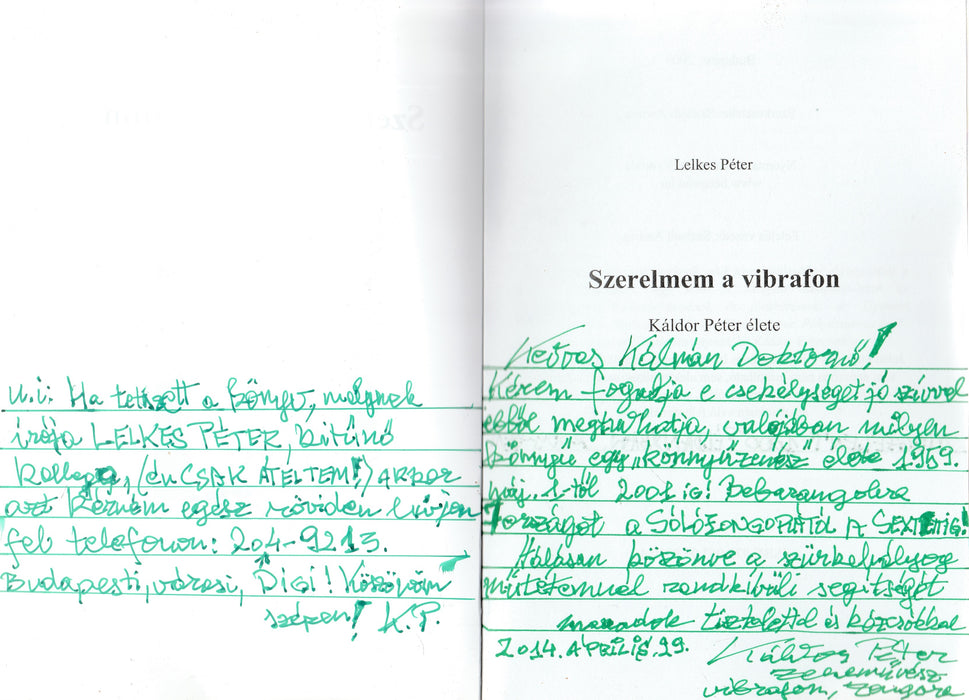 u.i: Ha tetszett a könyv, melynek
írója LELKES PÉTER, kitűnő
kollega, /én CSAK ÁTÉLTEM!/ AKKOR
azt kérném egész röviden hívjon
fel telefonon: 204-9213.
Budapesti, városi, DIGI! Köszönöm
szépen! K.P.
Lelkes Péter
Szerelmem a vibrafon
Káldor Péter élete
Kedves Kálmán Doktornő!
Kérem fogadja e csekélységet jó szívvel
ebből megtudhatja, valójában milyen
könnyű egy „könnyűzenész” élete 1959.
máj. 1-től 2001 ig! Bebarangolva
országot a SZÓLÓZONGORÁTÓL A SEXTETTIG!
Hálásan köszönve a szürkehályog
műtétemnél rendkívüli segítségét
maradok tisztelettel és kézcsókkal
2014. ÁPRILIS. 29.
Káldor Péter
zeneművész
vibrafon, zongora